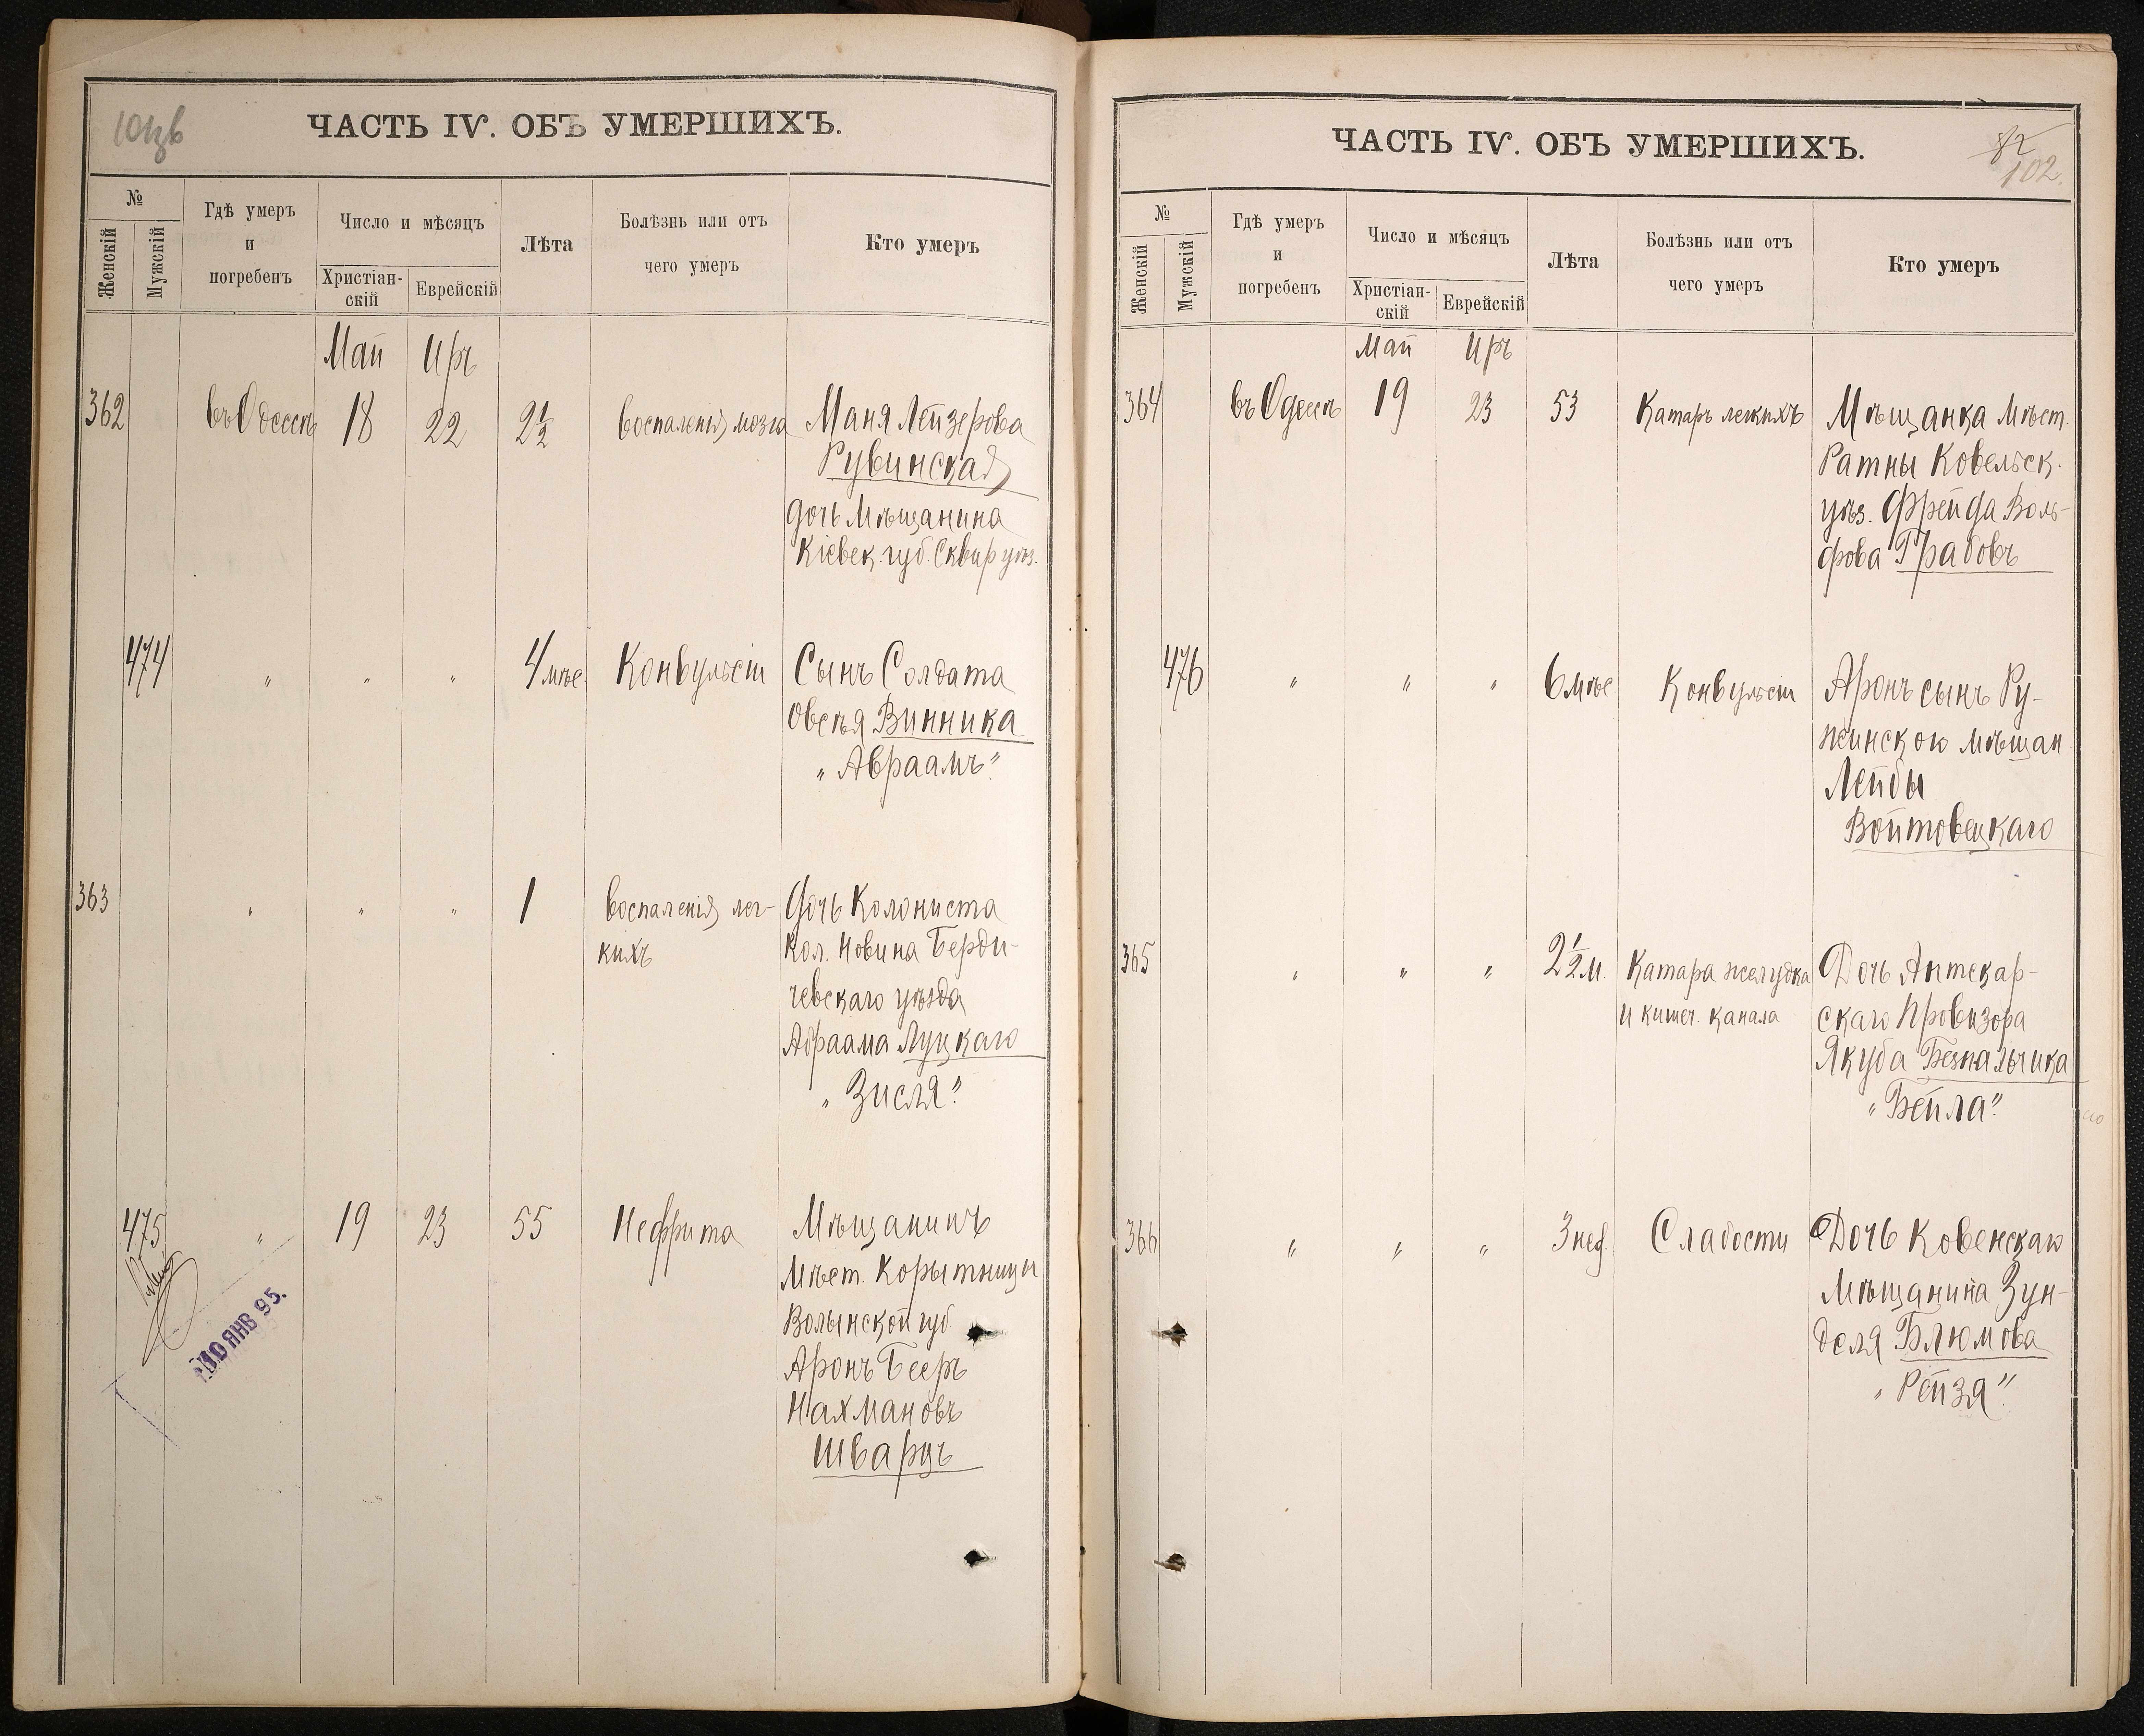 ЧАСТЬ IV. ОБЪ УМЕРШИХЪ.
№
Женскій
Мужскій
Гдѣ умеръ
и
погребенъ
Число и мѣсяцъ
Христіан-
скій
Еврейскій
Лѣта
Болѣзнь или отъ
чего умеръ
Кто умеръ
Май Иръ
362 въ Одессѣ 18 22 2½ воспаленія мозга Маня Лейзерова
Рувинская
дочь Мѣщанина
Кіевск. губ. Сквир уѣз.
474 " " " 4 мѣс. Конвульсіи Сынъ Солдата
Овсѣя Винника
"Авраамъ"
363 " " " 1 воспаленія лег- Дочь Колониста
кихъ кол. Новина Берди-
чевскаго уѣзда
Абраама Луцкаго
"Зисля"
475 " 19 23 55 Нефрита Мѣщанинъ
Мѣст. Корытницы
Волынской губ.
Аронъ Беръ
Нахмановъ
Шварцъ
10 ЯНВ 95.
ЧАСТЬ IV. ОБЪ УМЕРШИХЪ.
82
102
№
Женскій
Мужскій
Гдѣ умеръ
и
погребенъ
Число и мѣсяцъ
Христіан-
скій
Еврейскій
Лѣта
Болѣзнь или отъ
чего умеръ
Кто умеръ
Май Иръ
364 въ Одессѣ 19 23 53 Катаръ легкихъ Мѣщанка Мѣст.
Ратны Ковельск.
уѣз. Фрейда Воль-
фова Грабовъ
476 " " " 6 мѣс. Конвульсіи Аронъ сынъ Ру-
жинскою мѣщан
Лейбы
Войтовецкаго
365 " " " 2½ м. Катара желудка Дочь Аптекар-
и кишеч. канала скаго Провизора
Якуба Безпальчика
"Бейла"
366 " " " 3 нед. Слабости Дочь Ковенскаго
Мѣщанина Зун-
деля Блюмова
"Рейзя"